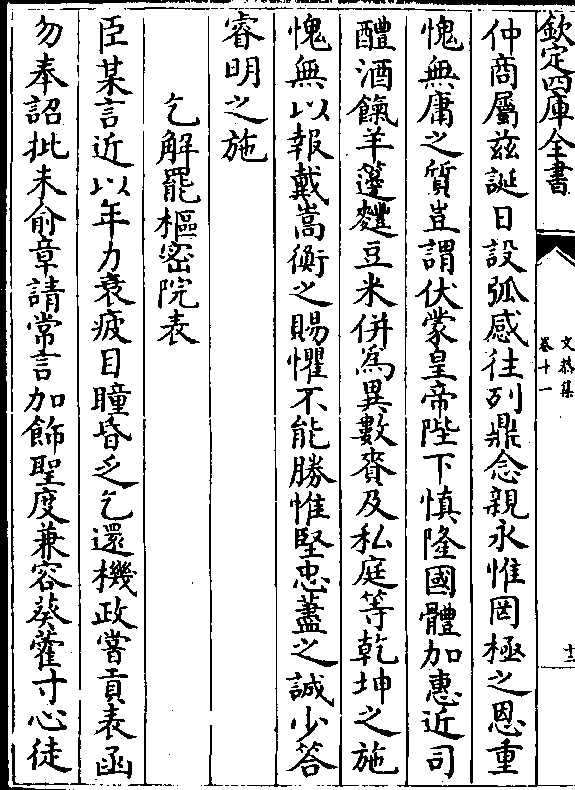 欽定四庫全書
文恭集
卷十一
十三
仲商屬茲誕日設弧感往列鼎念親永惟罔極之恩重
愧無庸之質豈謂伏蒙皇帝陛下慎隆國體加惠近司
醴酒餼羊籩麷豆米併為異數賚及私庭等乾坤之施
愧無以報戴嵩衡之賜懼不能勝惟堅忠藎之誠少答
睿明之施
乞解罷樞密院表
臣某言近以年力衰疲目瞳昏乏乞還機政嘗貢表函
勿奉詔批未俞章請常言加飾聖度兼容葵藿寸心徒